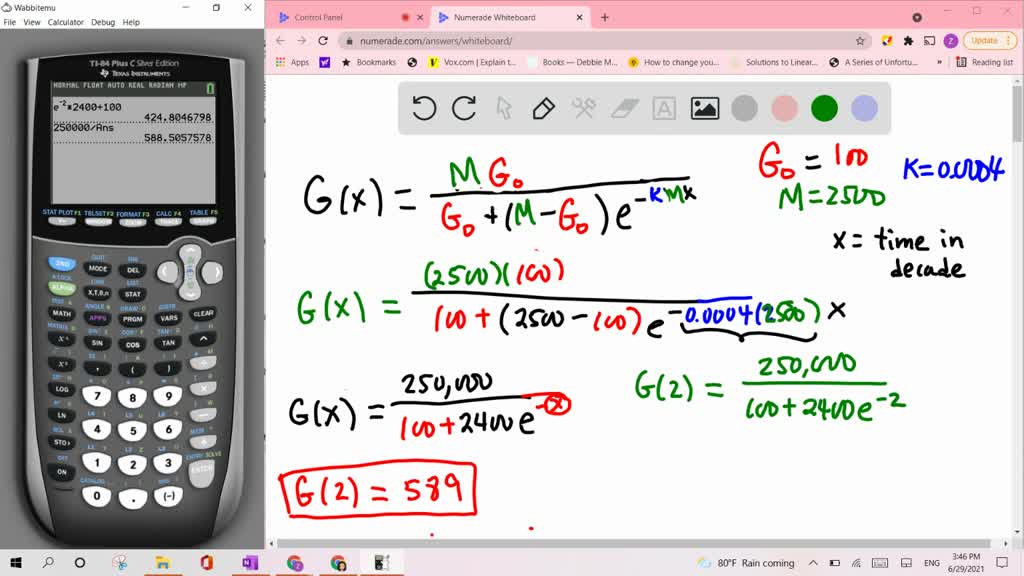 Wabbitemu
File View Calculator Debug Help
TI-84 Plus C Silver Edition
TEXAS INSTRUMENTS
NORMAL FLOAT AUTO REAL RADIAN MP
e^-2*2400+100
424.8046798
250000/Ans
588.5057578
STAT PLOT F1 TBLSET F2 FORMAT F3 CALC F4 TABLE F5
Y= WINDOW ZOOM TRACE GRAPH
2ND MODE DEL
ALPHA X,T,θ,n STAT
MATH APPS PRGM VARS CLEAR
SIN COS TAN ^
x² , ( )
LOG 7 8 9
LN 4 5 6
STO› 1 2 3
ON 0 . (-) ENTER
Control Panel
Numerade Whiteboard
numerade.com/answers/whiteboard/
Update
Apps Bookmarks Vox.com | Explain t... Books — Debbie M... How to change you... Solutions to Linear... A Series of Unfortu... » Reading list
G(x) = M G₀ / G₀ + (M - G₀) e^-KMx
G₀ = 100
K = 0.0004
M = 2500
x = time in
decade
G(x) = (2500)(100) / 100 + (2500 - 100) e^-0.0004(2500)x
G(x) = 250,000 / 100 + 2400 e^-x
G(2) = 250,000 / 100 + 2400e^-2
G(2) = 589
80°F Rain coming
ENG
3:46 PM
6/29/2021